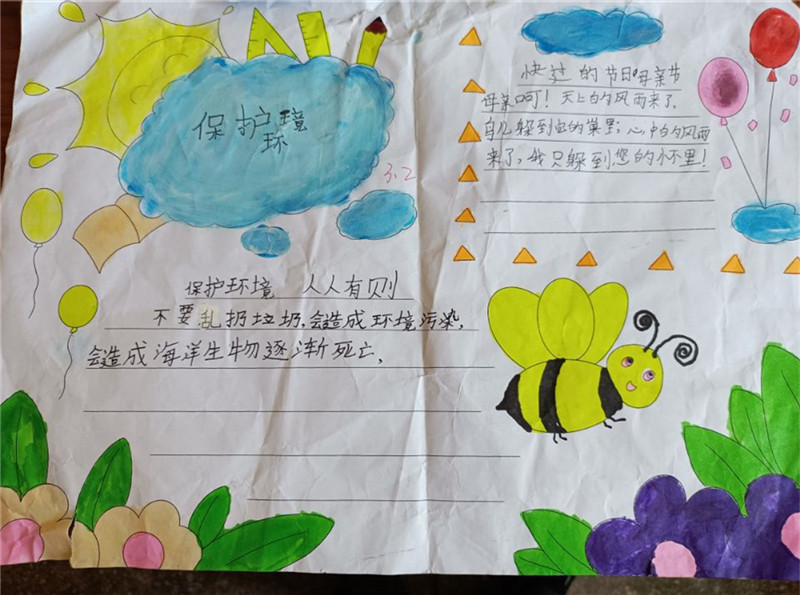 保护环境
3.2
保护环境 人人有则
不要乱扔垃圾，会造成环境污染，
会造成海洋生物逐渐死亡，
快过的节日母亲节
母亲呵！天上的风雨来了，
鸟儿躲到它的巢里；心中的风雨
来了，我只躲到您的怀里！